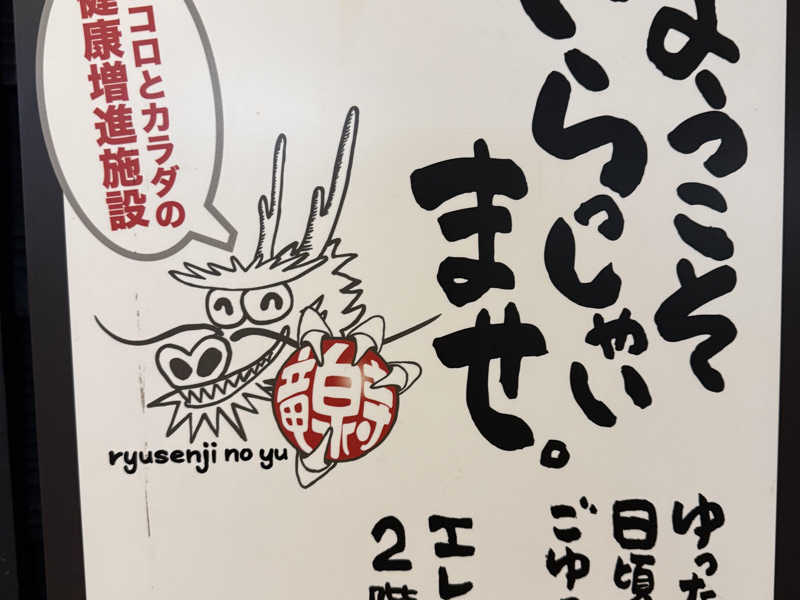 ようこそ
いらっしゃい
ませ。
ココロとカラダの
健康増進施設
竜泉寺
ryusenji no yu
ゆった
日頃
ごゆ
エレ
2階